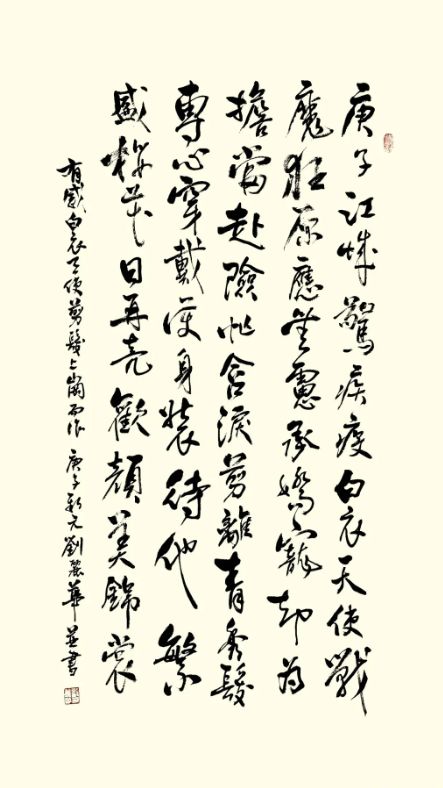 庚子江城驚疾疫白衣天使戰
魔狂原應無慮承嬌寵却為
擔當赴險忙含淚剪離青秀髮
專心穿戴護身裝待他繁
盛櫻花日再亮歡顏美錦裳
有感白衣天使剪髮上崗而作 庚子新元劉麗華並書